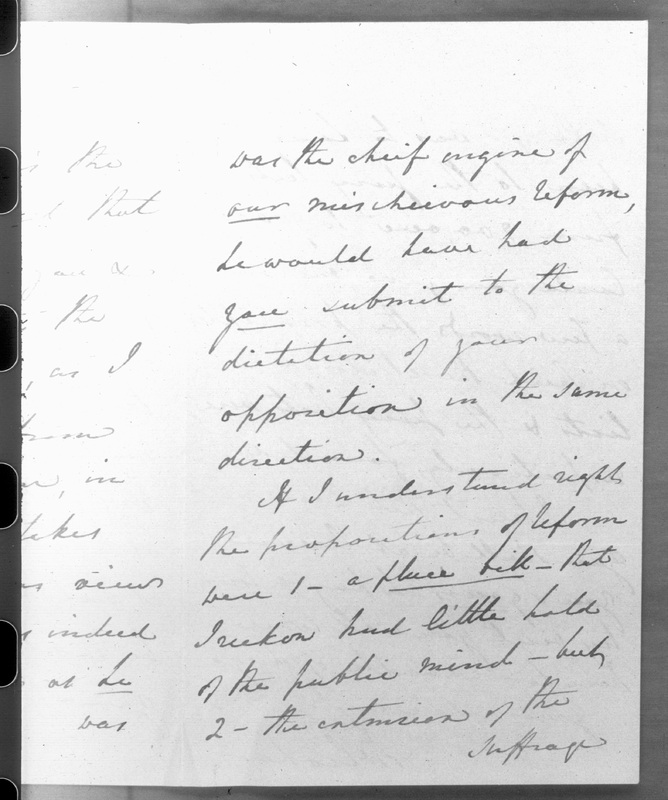 is the
that
you &
the
, as I
in
takes
views
indeed
as he
was
was the cheif engine of
our mischeivous Reform,
he would have had
you submit to the
dictation of your
opposition in the same
direction.
If I understand right
the propositions of Reform
were 1 – a place bill – that
I reckon had little hold
of the public mind – but
2 – the extension of the
suffrage